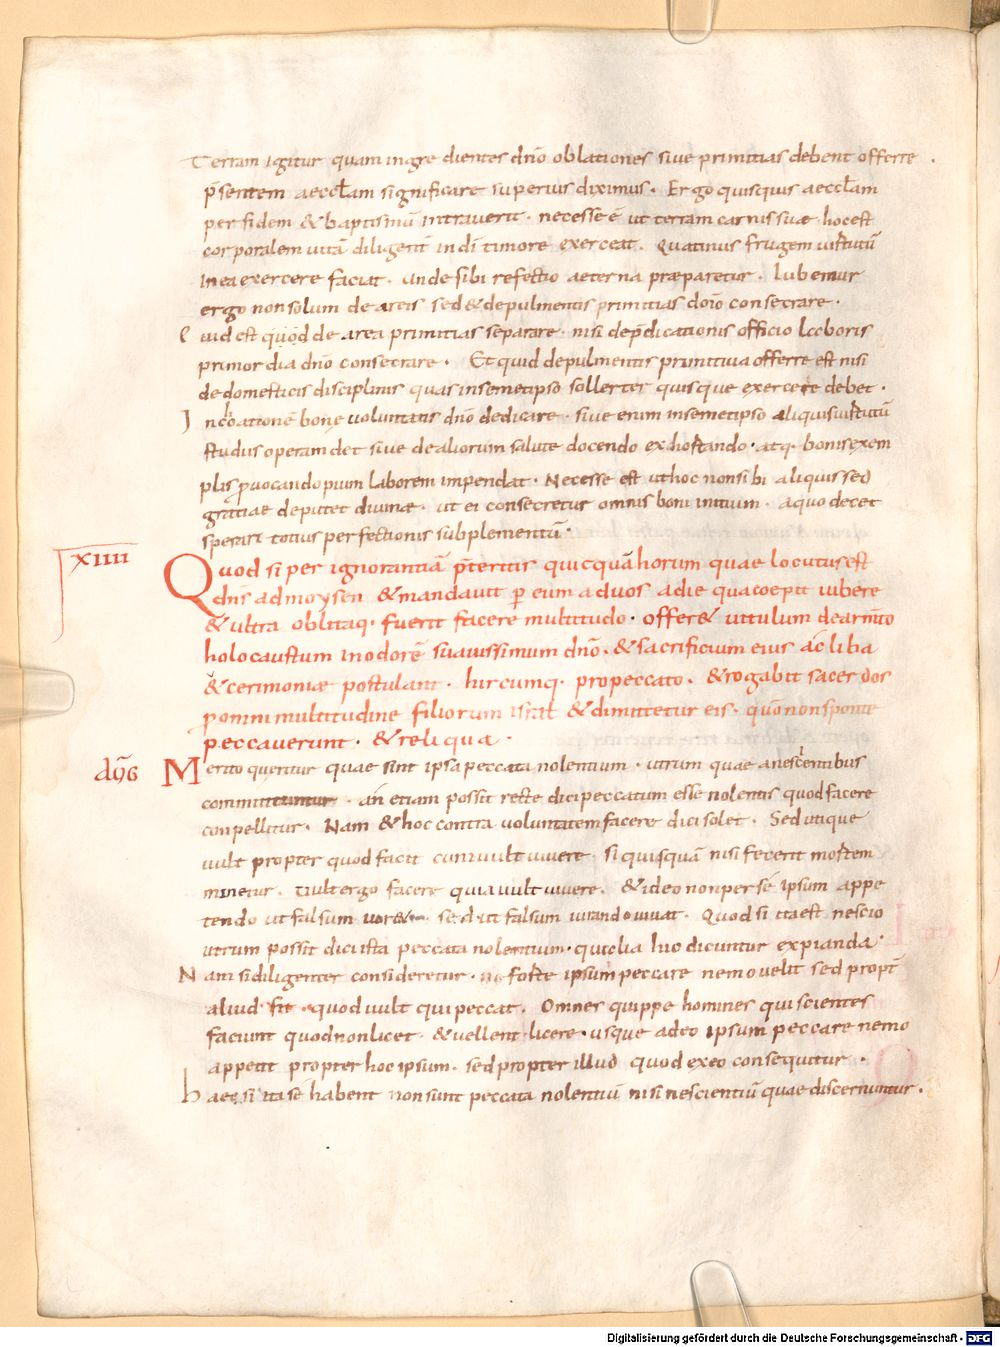 Terram igitur quam ingredientes dn̄o oblationes siue primitias debent offerre .
p̄sentem aeccl̄am significare superius diximus . Ergo quisquis aeccl̄am
per fidem & baptismū intrauerit . necesse ē ut terram carnis suae . hoc est
corporalem uitā diligent̄ in dī timore exerceat . Quatinus frugem uirtutū
in ea exercere faciat . unde sibi refectio aeterna praeparetur . Iubemur
ergo non solum de areis sed & de pulmentis primitias dn̄o consecrare .
uid est quod de area primitias separare . nisi de p̄dicationis officio laboris
primordia dn̄o consecrare . Et quid de pulmentis primitiua offerre est nisi
de domesticis disciplinis quas in semetipso sollerter quisque exercere debet .
Inchoationē bonę uoluntatis dn̄o dedicare . siue enim in semetipso aliquis uirtutū
studiis operam det siue de aliorum salute docendo exhortando . atq. bonis exem
plis ꝓuocando pium laborem impendat . Necesse est ut hoc non sibi aliquis sed
gratiae deputet diuinae . ut ei consecretur omnis boni initium . a quo decet
sperari totius perfectionis subplementū .
XIIII Quod si per ignorantiā p̄teritis quicquā horum quae locutus est
dn̄s ad moysen & mandauit ꝑ eum ad uos a die qua coepit iubere
& ultra oblitaq. fuerit facere multitudo . offer& uitulum de armēto
holocaustum in odorē suauissimum dn̄o . & sacrificium eius ac liba
& cerimoniae postulant . hircumq. pro peccato . & rogabit sacerdos
ꝓ omni multitudine filiorum isrl̄ & dimittetur eis . quō non sponte
peccauerunt . & reliqua .
AUG Merito queritur quae sint ipsa peccata nolentium . utrum quae a nescientibus
committuntur . an etiam possit recte dici peccatum esse nolentis quod facere
conpellitur . Nam & hoc contra uoluntatem facere dici solet . Sed utique
uult propter quod facit cum uult uiuere . si quisquā nisi fecerit mortem
minetur . Uult ergo facere quia uult uiuere . & ideo non per sé ipsum appe
tendo ut falsum iur& sed ut falsum iurando uiuat . Quod si ita est nescio
utrum possit dici ista peccata nolentium . qualia hic dicuntur expianda .
Nam si diligenter consideretur . forte ipsum peccare nemo uelit sed propt̄
aliud fit . quod uult qui peccat . Omnes quippe homines qui scientes
faciunt quod non licet . & uellent licere . usque adeo ipsum peccare nemo
appetit propter hoc ipsum . sed propter illud quod ex eo consequitur .
haec si ita sé habent non sunt peccata nolentiū nisi nescientiū quae discernuntur .
Digitalisierung gefördert durch die Deutsche Forschungsgemeinschaft - DFG